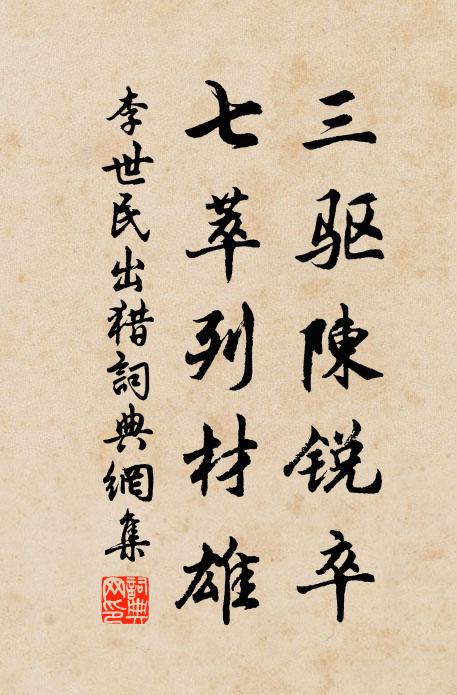 三驱陳锐卒
七萃列材雄
李世民出猎詞典網集
詞典
网印